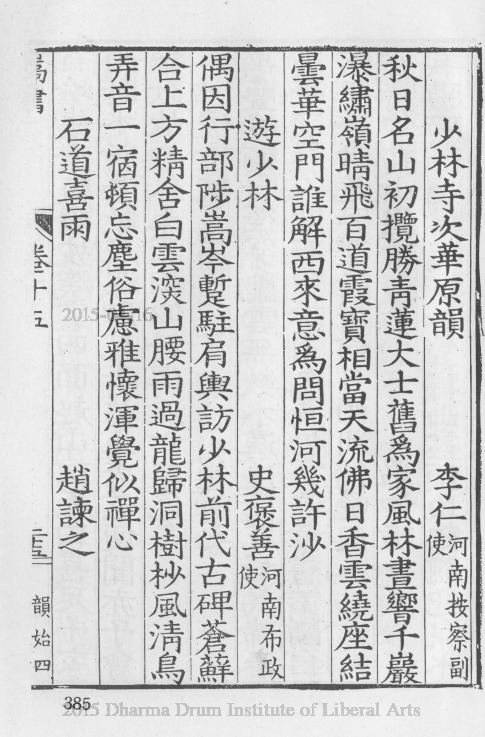 少林寺次華原韻　李仁河南按察副使
秋日名山初攬勝青蓮大士舊爲家風林晝響千巖
瀑繡嶺晴飛百道霞寶相當天流佛日香雲繞座結
曇華空門誰解西來意爲問恒河幾許沙
遊少林　史褒善河南布政使
偶因行部陟嵩岑蹔駐肩輿訪少林前代古碑蒼蘚
合上方精舍白雲深山腰雨過龍歸洞樹杪風清鳥
弄音一宿頓忘塵俗慮雅懷渾覺似禪心
石道喜雨　趙諫之
嵩書
卷十五
韻始四
385
2015 Dharma Drum Institute of Liberal Arts